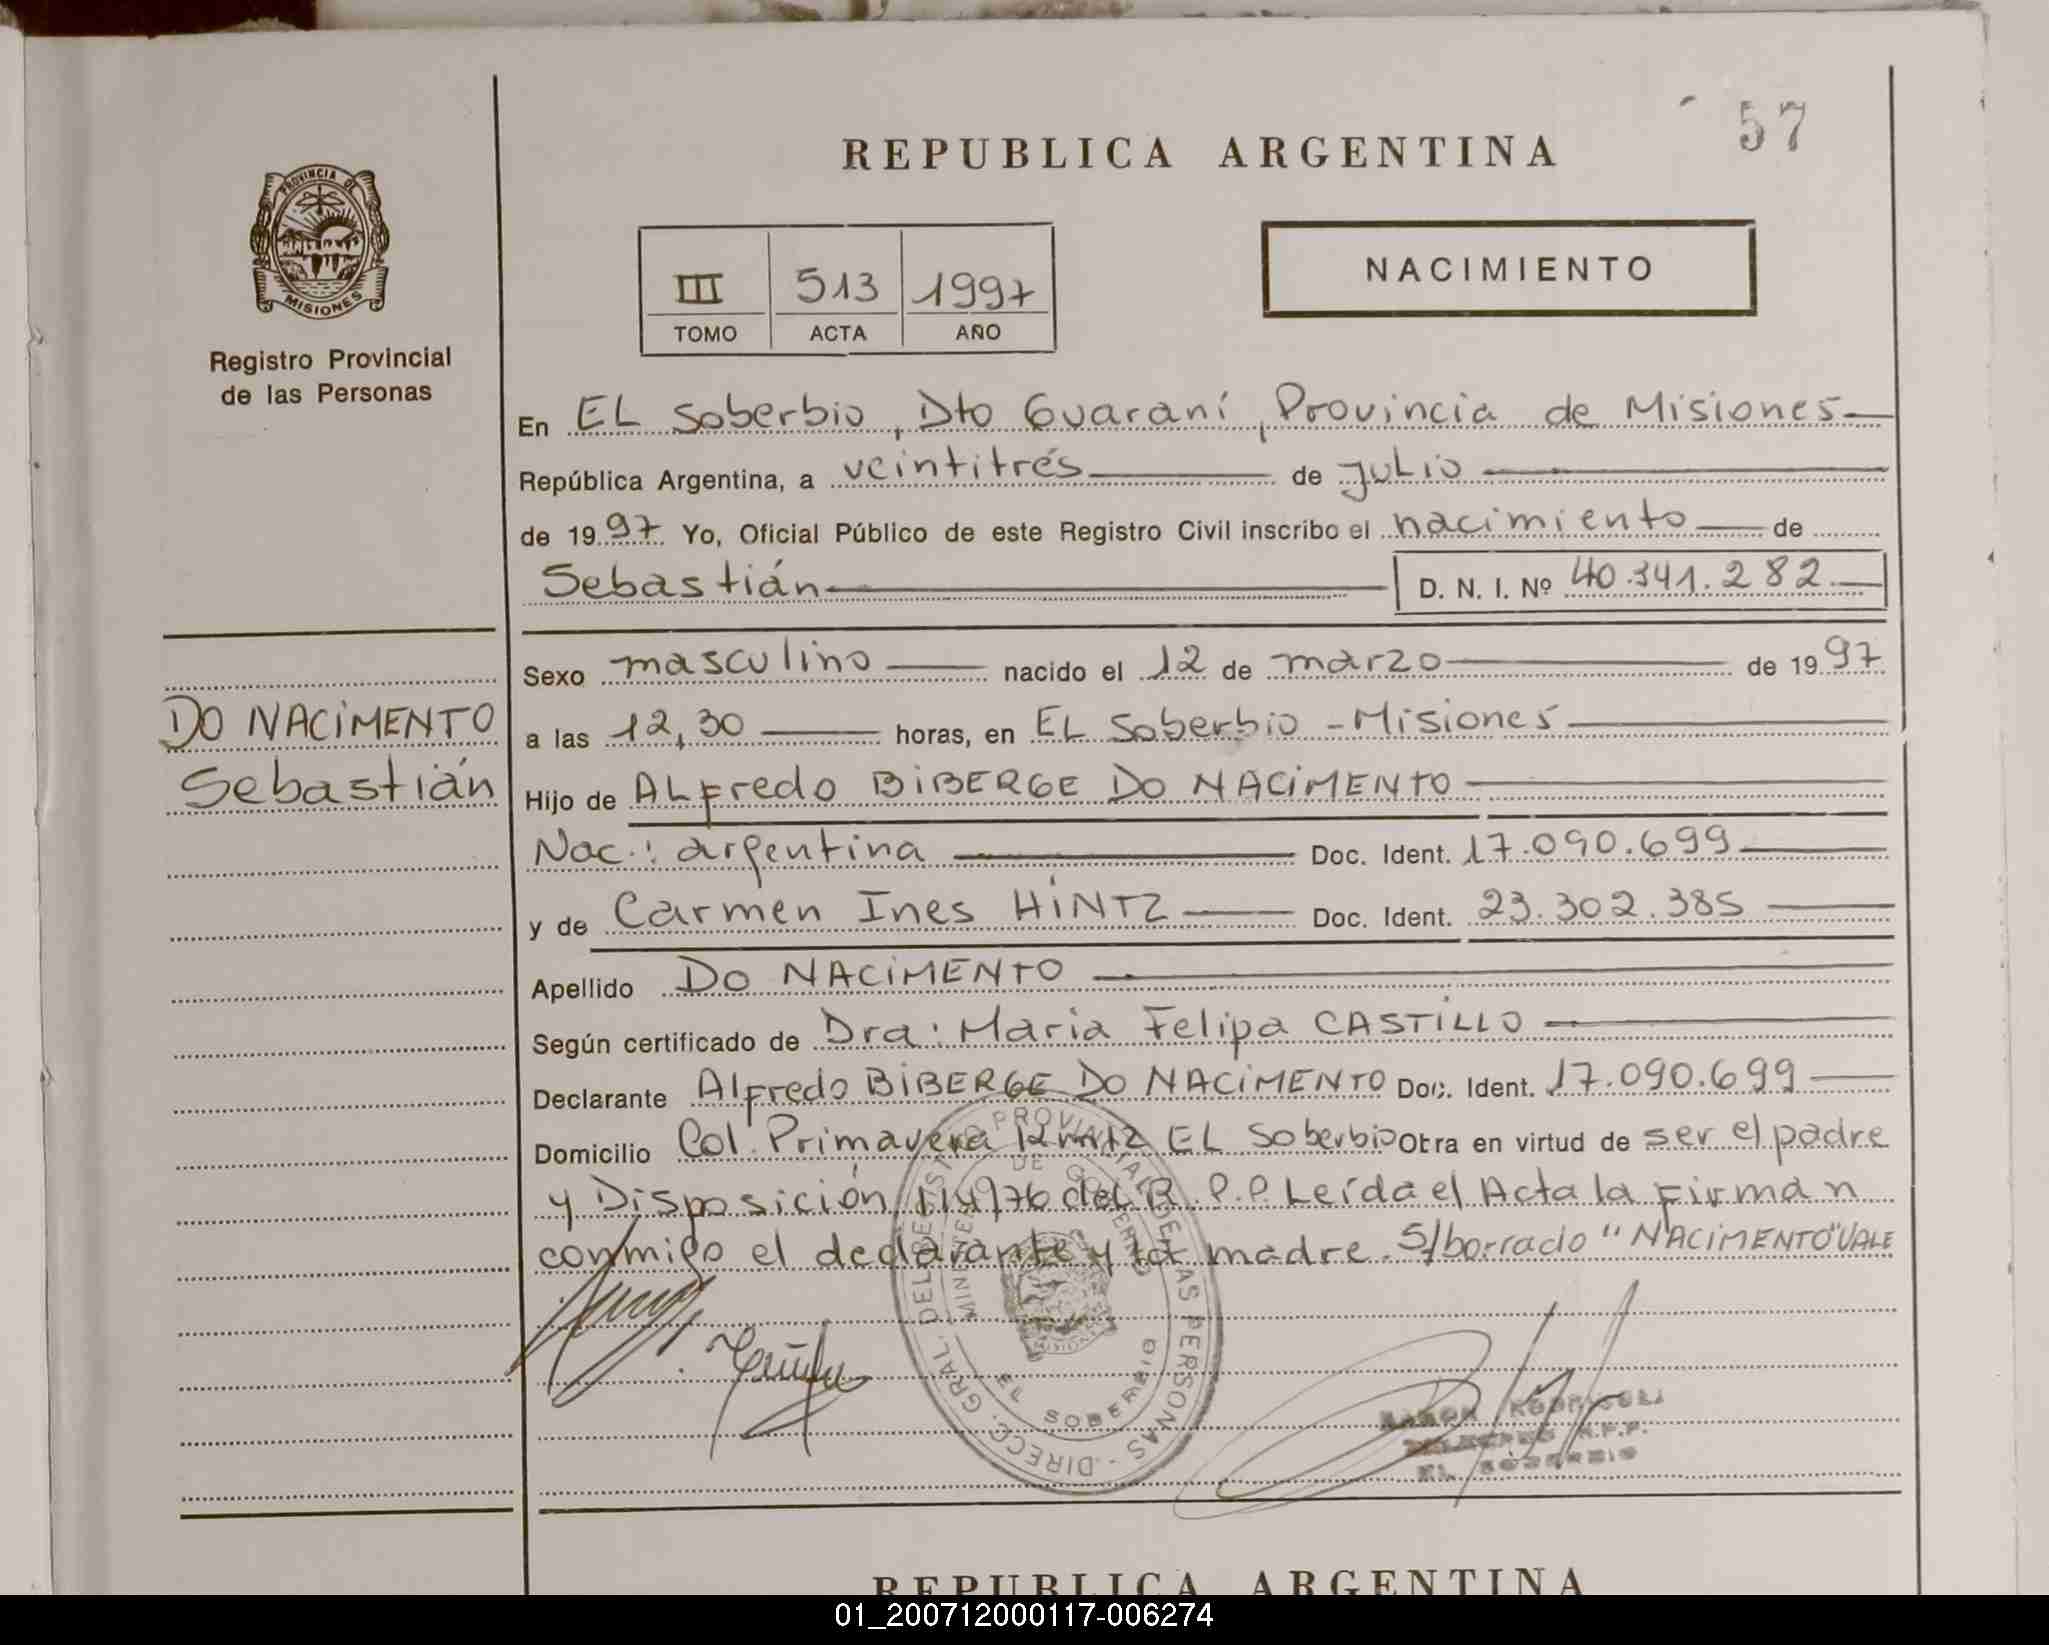 57
REPUBLICA ARGENTINA
PROVINCIA DE
MISIONES
Registro Provincial
de las Personas
III 513 1997
TOMO ACTA AÑO
NACIMIENTO
En EL Soberbio, Dto Guaraní, Provincia de Misiones
República Argentina, a veintitrés de Julio
de 1997 Yo, Oficial Público de este Registro Civil inscribo el nacimiento de
Sebastián D. N. I. Nº 40.341.282
Sexo masculino nacido el 12 de marzo de 1997
DO NACIMENTO
Sebastián
a las 12,30 horas, en EL Soberbio - Misiones
Hijo de ALfredo BIBERGE DO NACIMENTO
Nac.: argentina Doc. Ident. 17.090.699
y de Carmen Ines HINTZ Doc. Ident. 23.302.385
Apellido DO NACIMENTO
Según certificado de Dra: Maria Felipa CASTILLO
Declarante Alfredo BIBERGE DO NACIMENTO Doc. Ident. 17.090.699
Domicilio Col. Primavera EL Soberbio Obra en virtud de ser el padre
y Disposición 114/76 del R.P.P. Leída el Acta la firman
conmigo el declarante y la madre. S/borrado "NACIMENTO" VALE
DIRECC. GRAL. DEL REGISTRO PROVINCIAL DE LAS PERSONAS
MINISTERIO DE GOBIERNO
EL SOBERBIO
EL SOBERBIO
REPUBLICA ARGENTINA
01_200712000117-006274